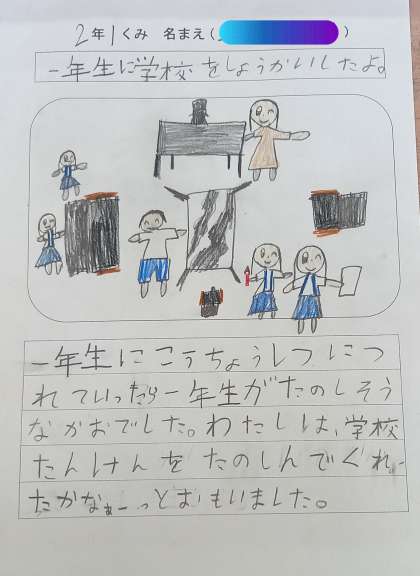 2年1くみ 名まえ( )
一年生に学校をしょうかいしたよ。
一年生にこうちょうしつにつ
れていったら一年生がたのしそう
なかおでした。わたしは、学校
たんけんをたのしんでくれ
たかなぁーっとおもいました。